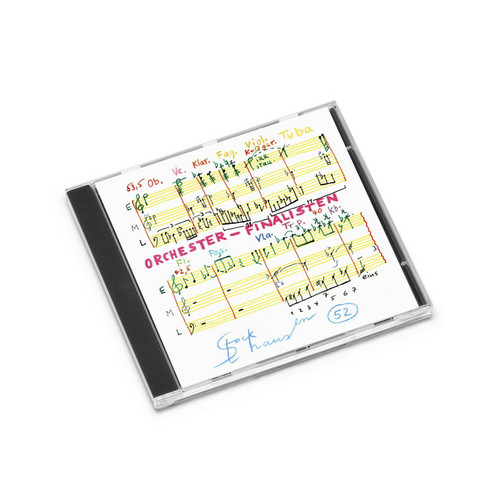 53,5 Ob. Vc. Klar. Fag. Viol. Tuba
E
M
L
ORCHESTER – FINALISTEN
Fl. Pos. Vla. Trp. Kb.
E
M
L
1 2 3 4 5 6 7
eins
Stockhausen 52